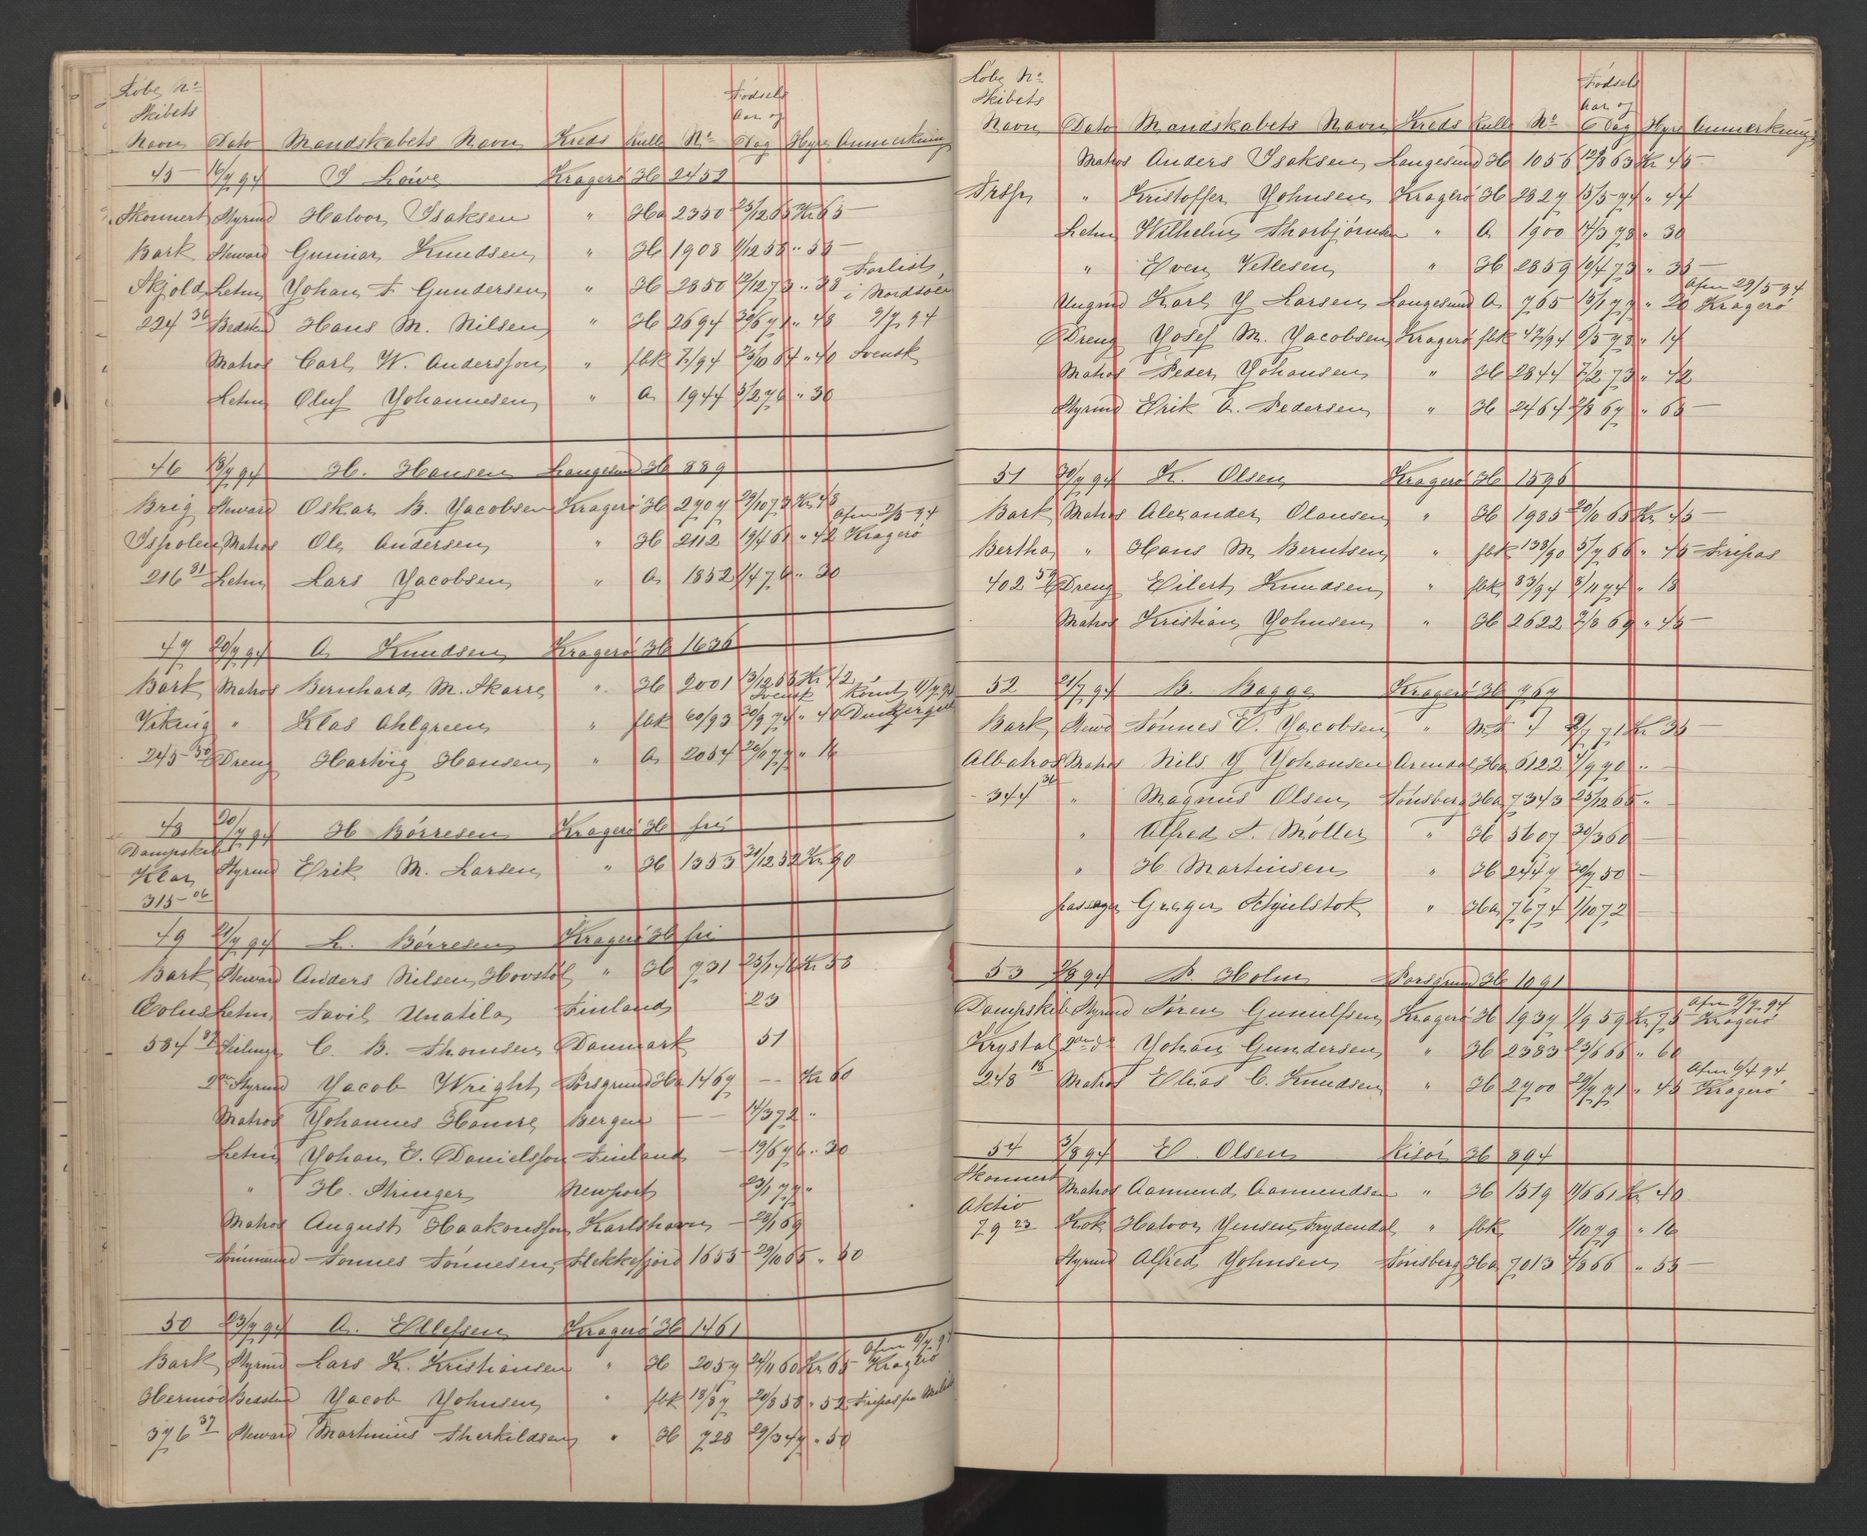 Løbe No
Skibets
Navn Dato Mandskabets Navn Kreds Rulle No Fødsels Aar og Dag Hyre Anmerkning
45 16/7 94 J Løwe Kragerø H 2452
Skonnert Styrmd Halvor Isaksen " Ha 2350 25/12 65 Kr 65 —
Bark Steward Gunnar Knudsen " H 1908 1/12 56 " 55 —
Skjold Letm Johan F Gundersen " H 2850 12/12 73 " 33 Forlist i Nordsøen
224 36 Bedstd Hans M. Nilsen " H 2694 30/6 71 " 48 9/7 94
Matros Carl W. Andersson " fbk 7/94 25/10 64 " 40 Svensk
Letm Oluf Johannesen " A 1944 5/2 76 " 30
46 18/7 94 H. Hansen Langesund H 889
Brig Steward Oskar B. Jacobsen Kragerø H 2707 29/10 73 Kr 48
Ispolen Matros Ole Andersen " H 2112 19/4 61 " 42 Afm 2/5 94 Kragerø
216 81 Letm Lars Jacobsen " A 1852 1/4 76 " 30
47 20/7 94 A Knudsen Kragerø H 1636
Bark Matros Bernhard M. Skarre " H 2001 13/12 65 Kr 42
Viking " Klas Ahlgreen " fbk 60/93 Svensk 30/9 74 " 40
245 50 Dreng Hartvig Hansen " A 2054 20/1 77 " 16
48 20/7 94 H Børresen Kragerø H fri
Dampskib Styrmd Erik M. Larsen " H 1353 31/12 52 Kr 90
Klar
315 06
49 21/7 94 L. Børresen Kragerø H fri
Bark Steward Anders Nilsen Hovstøl " H 731 25/1 46 Kr 58
Eolus Letm Savil Unatila Finland 23
584 87 C. B. Thomsen Danmark 51
2den Styrmd Jacob Wright Porsgrund Ha 1467 -- Kr 60
Matros Johannes Hamre Bergen — — 14/3 72 "
Letm Johan E. Danielsson Finland — 19/6 76 " 30
" H. Stringer Newport 23/1 77 "
Matros August Haakonsson Karlshavn — 28/1 69
Tømmermd Tønnes Tønnesen Flekkefjord 1655 — 29/10 65 " 50
50 23/7 94 A. Ellefsen Kragerø H 1461
Bark Styrmd Lars K. Kristiansen " H 2057 24/11 60 Kr 65 Kragerø
Hermod Bedstmd Jacob Johnsen " fbk 18/87 20/8 58 " 52
376 37 Steward Martinius Therkildsen " H 728 29/3 47 " 50
Løbe No
Skibets
Navn Dato Mandskabets Navn Kreds Rulle No Fødsels Aar og Dag Hyre Anmerkning
Matros Anders Isaksen Langesund H 1056 12/8 63 Kr 45 —
" Kristoffer Johnsen Kragerø H 2827 15/5 74 " 44
Letm Wilhelm Thorbjørnsen " A 1900 14/3 78 " 30
" Even Vetlesen " H 2859 10/4 73 " 35 —
Ungmd Karl J Larsen Langesund A 765 15/1 77 " 20 Afm 29/5 94 Kragerø
Dreng Josef M. Jacobsen Kragerø fbk 42/94 6/5 78 " 14
Matros Peder Johansen " H 2844 7/2 73 " 42
Styrmd Erik A. Pedersen " H 2464 2/8 67 " 65 —
51 30/7 94 K. Olsen Kragerø H 1596
Bark Matros Alexander Olausen " H 1985 20/10 65 Kr 45 —
Bertha " Hans M Berntsen " fbk 138/90 5/7 66 " 45 Sirepas
402 59 Dreng Eilert Knudsen " fbk 83/94 8/11 74 " 18
Matros Kristian Johnsen " H 2622 2/8 69 " 45 —
52 21/7 94 B. Bagge Kragerø H 767
Bark Stewd Tønnes E. Jacobsen " 2/7 71 Kr 35 —
Albatros Matros Nils J Johansen Arendal Ha 6122 4/9 70 " —
344 36 " Magnus Olsen Tønsberg Ha 7343 25/12 65 " —
" Alfred A. Møller " H 5607 30/3 60 —
" H. Martinsen " H 2447 30/7 50 —
passager Greger Schjelstok " Ha 7674 1/10 72 —
53 2/8 94 P. Holm Porsgrund H 1091
Dampskib Styrmd Søren Gunulfsen Kragerø H 1937 1/9 59 Kr 75 Afm 9/7 94 Kragerø
Krystal 2den do Johan Gundersen " H 2383 23/6 66 " 60
248 18 Matros Elias C. Knudsen " H 2700 29/7 71 " 45 Afm 6/4 94 Kragerø
54 3/8 94 E. Olsen Risør H 894
Skonnert Matros Aamund Aamundsen " H 1519 11/6 61 Kr 40
Aktiv
79 23 Kok Halvor Jensen Frydendal " fbk 1/10 79 " 16
Styrmd Alfred Johnsen Tønsberg Ha 7013 4/8 66 " 55 —